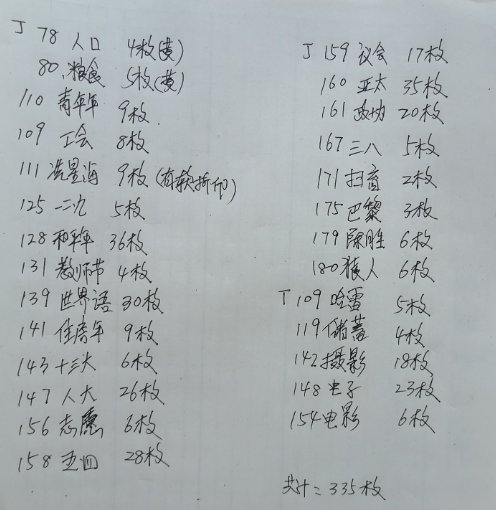 J 78 人口 4枚(黄)
80 粮食 5枚(黄)
110 青年年 9枚
109 工会 8枚
111 冼星海 9枚(有软折印)
125 一二九 5枚
128 和平年 36枚
131 教师节 4枚
139 世界语 30枚
141 住房年 9枚
143 十三大 6枚
147 人大 26枚
156 志愿 6枚
158 亚四 28枚
J 159 议会 17枚
160 亚太 35枚
161 政协 20枚
167 三八 5枚
171 扫盲 2枚
175 巴黎 3枚
179 陈胜 6枚
180 猿人 6枚
T 109 哈雷 5枚
119 储蓄 4枚
142 摄影 18枚
148 电子 23枚
154 电影 6枚
共计=335枚